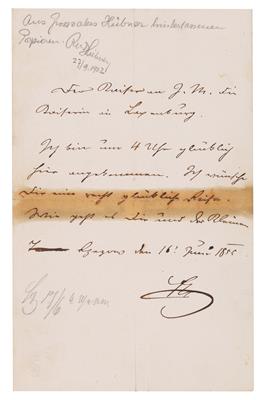 Aus Grosspapas Hübner hinterlassenen
Papieren.
27/9. 1902
Der Kaiser an I. M. die
Kaiserin in Laxenburg.
Ich bin um 4 Uhr glücklich
hier angekommen. Ich wünsche
Dir eine recht glückliche Reise.
Wie geht es Dir und der Kleinen
den 16t Juni 1855